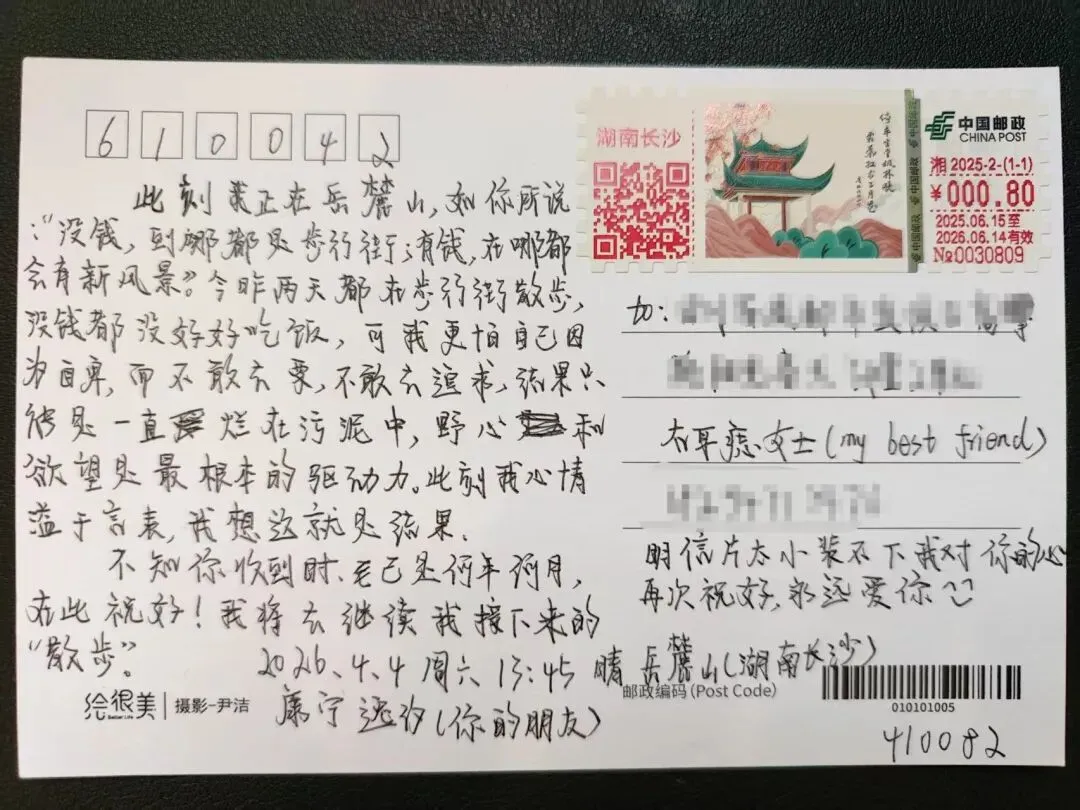 610042
湖南长沙
停车坐爱枫林晚
霜叶红于二月花
中国邮政
CHINA POST
湘 2025-2-(1-1)
¥000.80
2025.06.15至
2026.06.14有效
№0030809
此刻我正在岳麓山，如你所说
：“没钱，到哪都是步行街；有钱，在哪都
会有新风景”。今昨两天都在步行街散步，
没钱都没好好吃饭，可我更怕自己因
为自卑，而不敢去要，不敢去追求，结果只
能是一直烂在污泥中，野心和
欲望是最根本的驱动力。此刻我心情
溢于言表，我想这就是结果。
不知你收到时、已是何年何月，
在此祝好！我将去继续我接下来的
“散步”。
2026.4.4 周六 13:45 晴 岳麓山（湖南长沙）
康宁（你的朋友）
右耳痣女士（my best friend）
明信片太小装不下我对你的心
再次祝好，永远爱你
绘很美
Better Life
摄影-尹洁
邮政编码 (Post Code)
010101005
410082